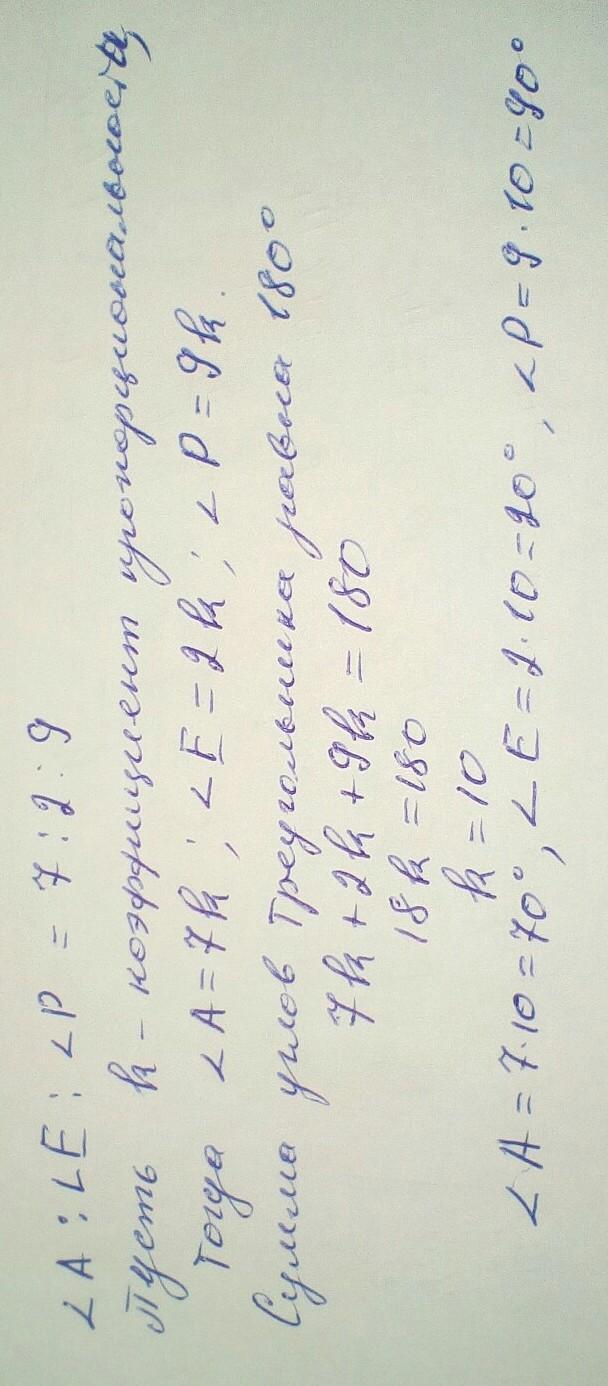 ∠A : ∠E : ∠P = 7 : 2 : 9
Пусть k – коэффициент пропорциональности,
Тогда ∠A = 7k ; ∠E = 2k ; ∠P = 9k.
Сумма углов треугольника равна 180°
7k + 2k + 9k = 180
18k = 180
k = 10
∠A = 7·10 = 70°, ∠E = 2·10 = 20°, ∠P = 9·10 = 90°